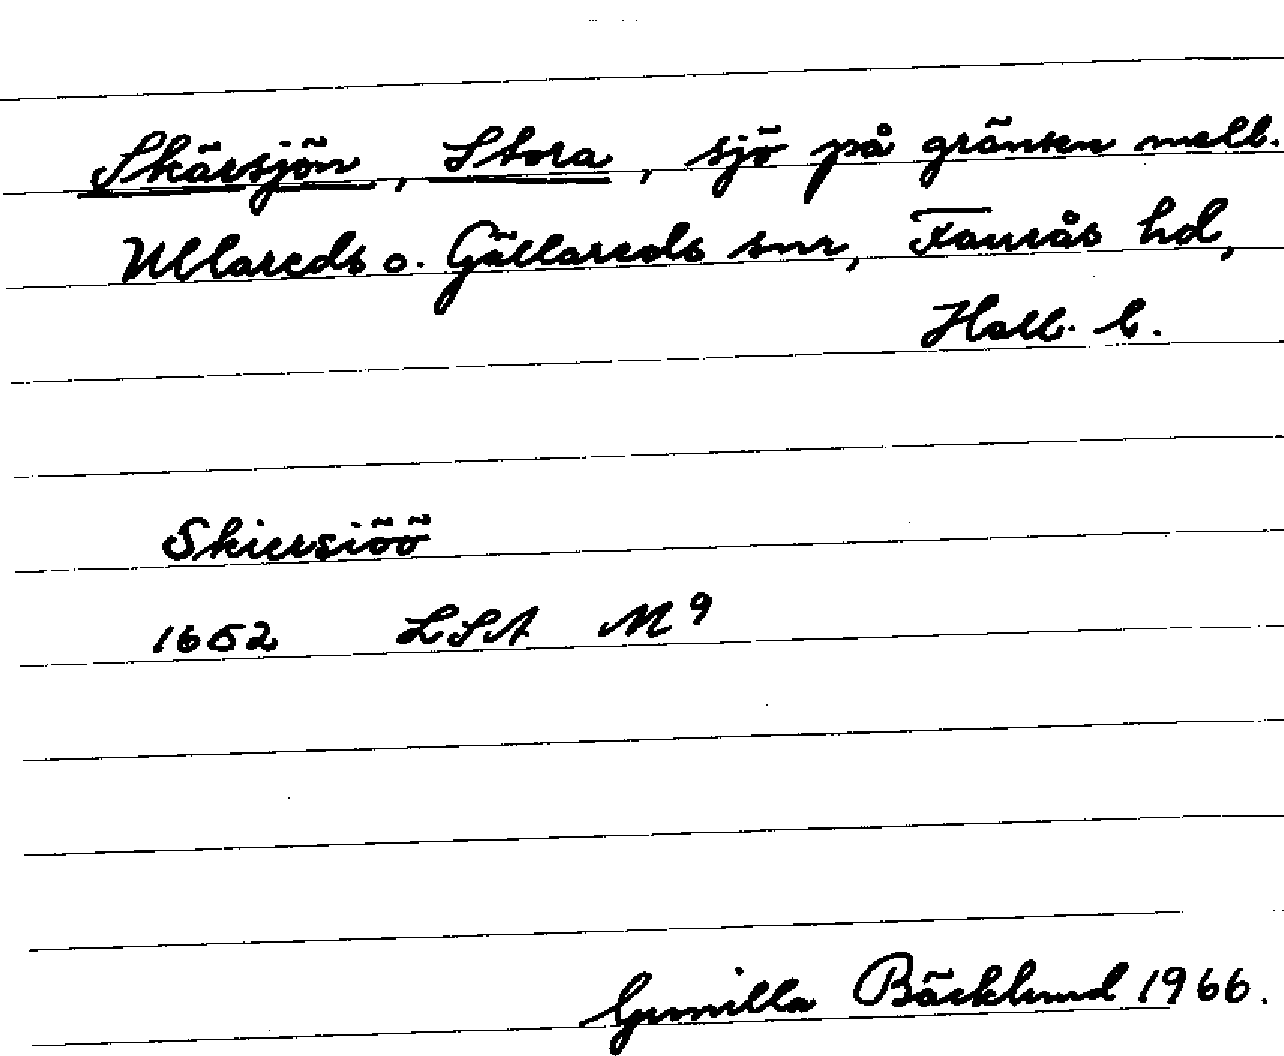 Skärsjön, Stora, sjö på gränsen mell.
Ullareds o. Gällareds snr, Faurås hd,
Hall. l.
Skiersiöö
1652 LSA M9
Gunilla Bäcklund 1966.